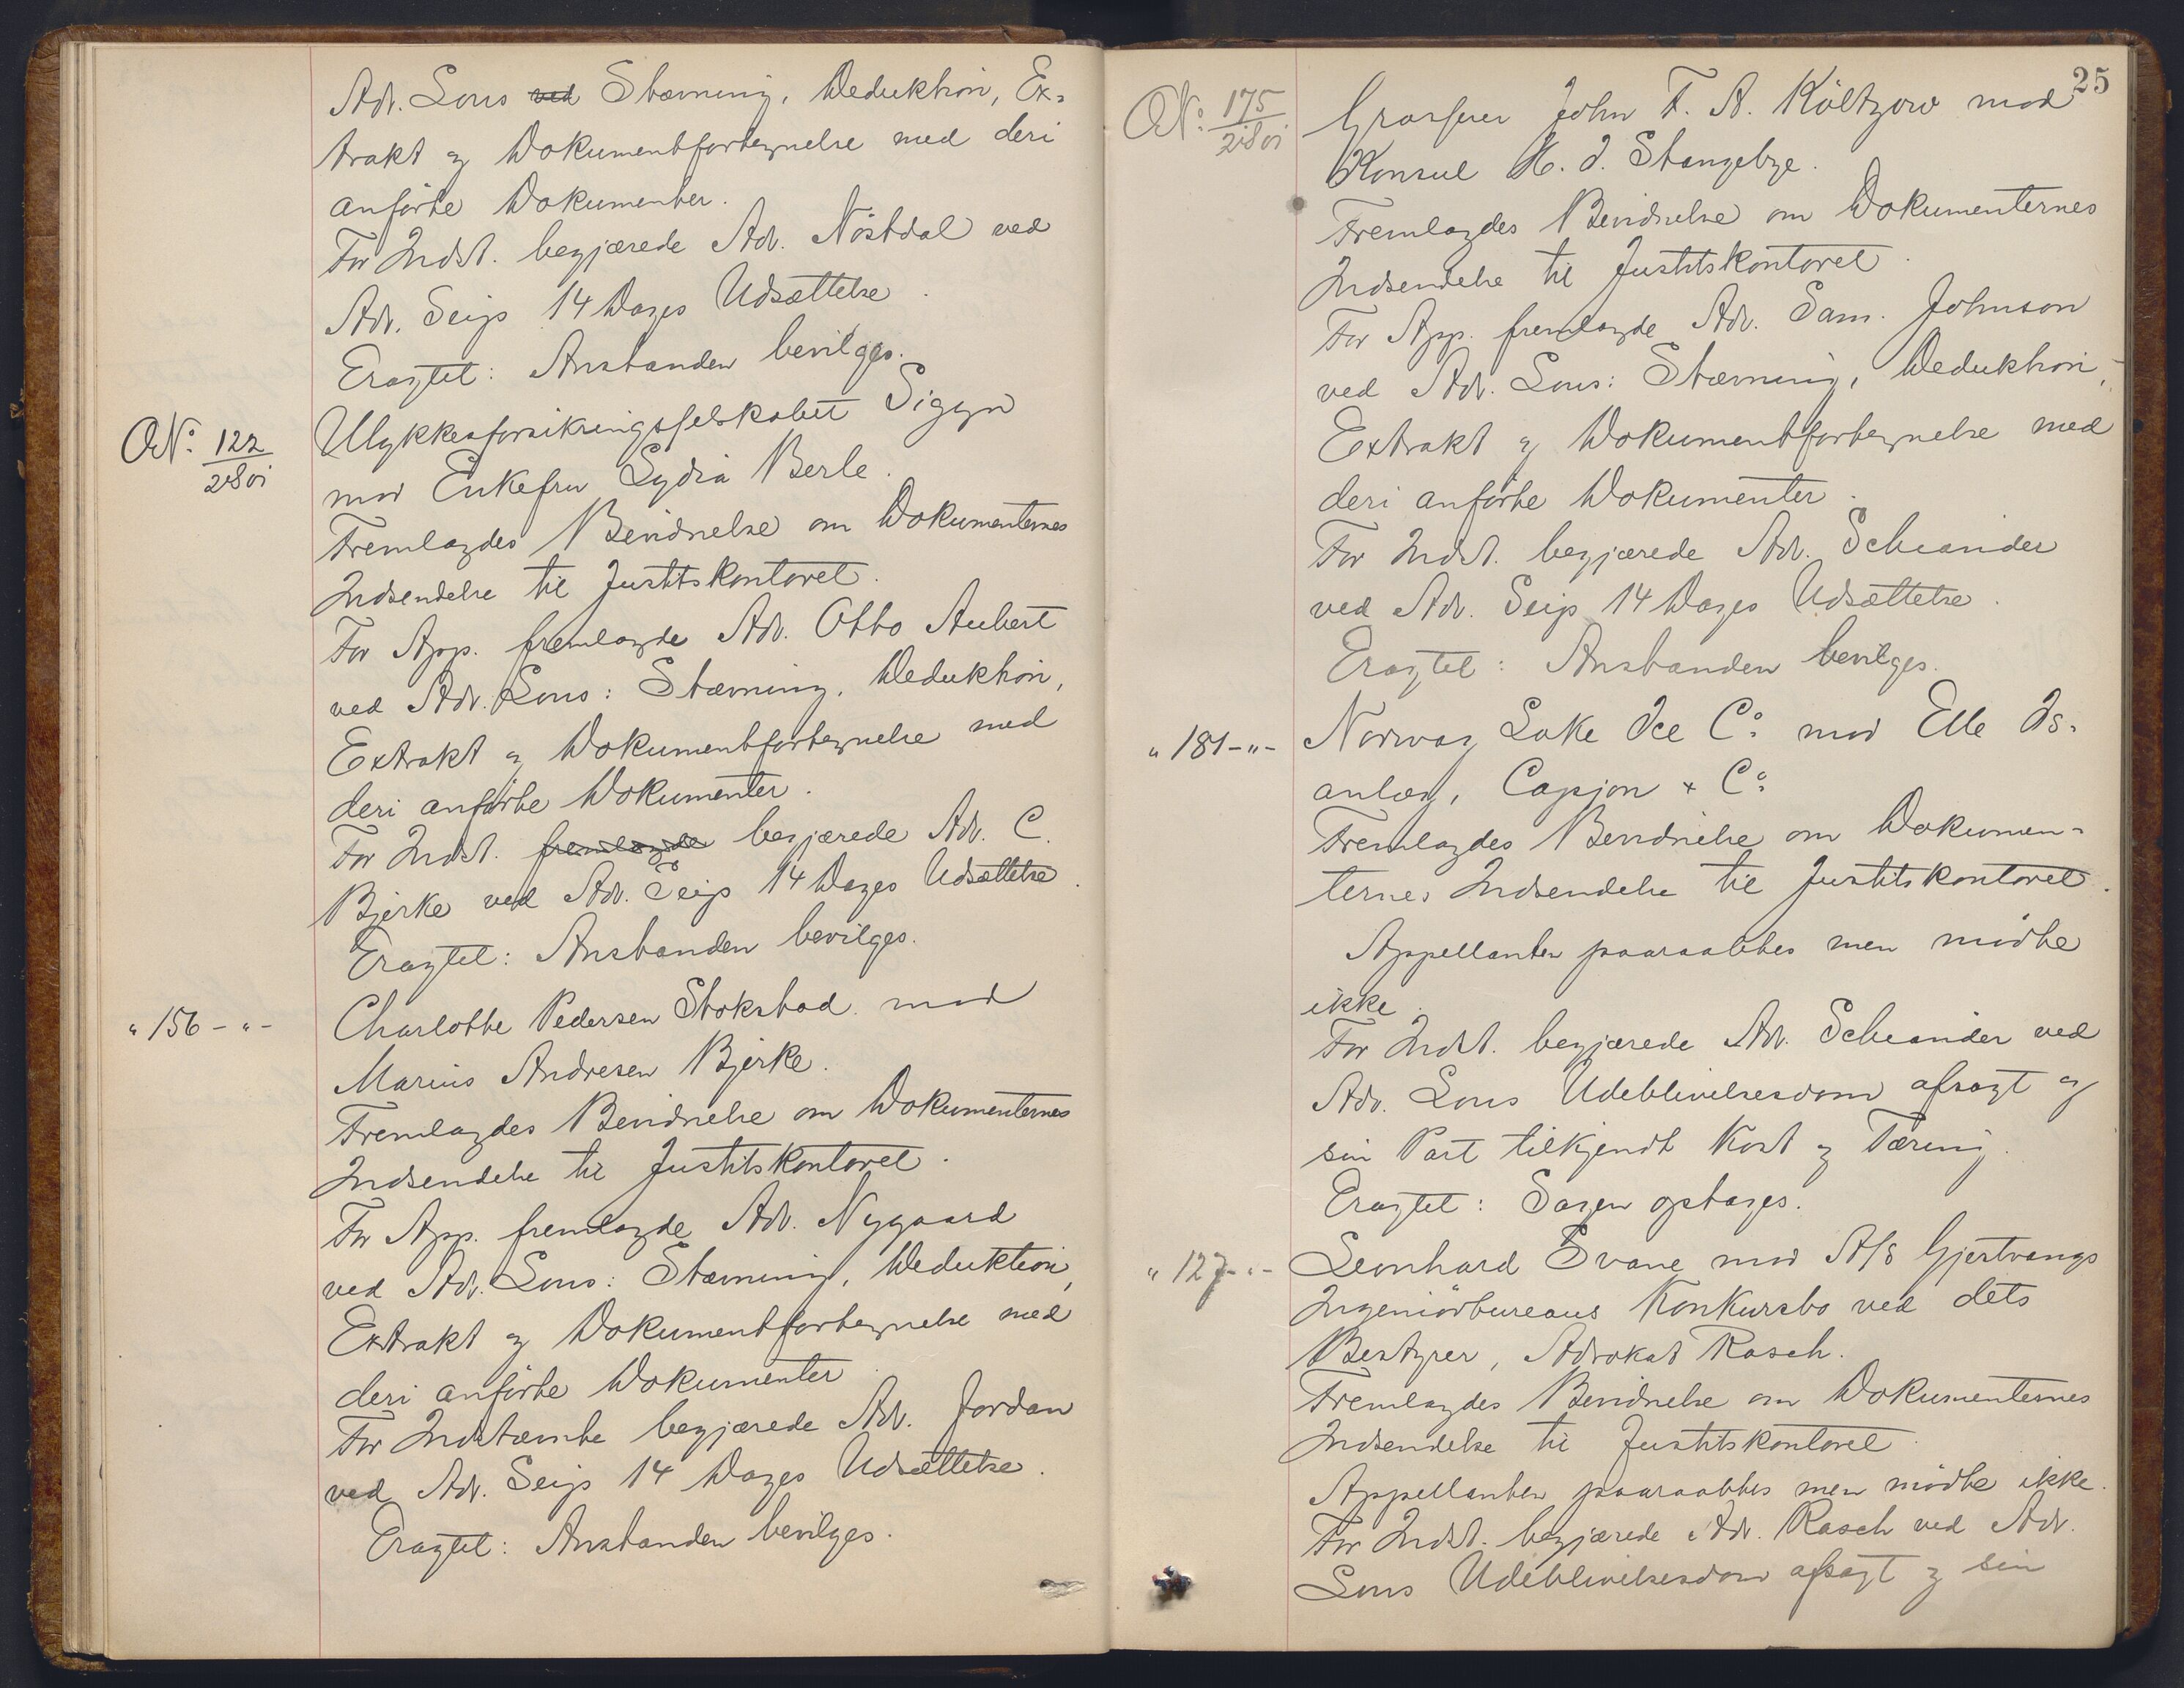 Adv. Lous ved Stævning, Deduktion, Ex-
trakt og Dokumentfortegnelse med deri
anførte Dokumenter.
For Indst. begjærede Adv. Nöstdal ved
Adv. Seip 14 Dages Udsættelse.
Eragtet: Anstanden bevilges.
No. 122
2i801
Ulykkesforsikringsselskabet Sigyn
mod Enkefru Lydia Berle.
Fremlagdes Bevidnelse om Dokumenternes
Indsendelse til Justitskontoret.
For App. fremlagde Adv. Otto Aubert
ved Adv. Lous: Stævning, Deduktion,
Extrakt og Dokumentfortegnelse med
deri anførte Dokumenter.
For Indst. fremlagde begjærede Adv. C.
Bjerke ved Adv. Seip 14 Dages Udsættelse.
Eragtet: Anstanden bevilges.
" 156 - " -
Charlotte Pedersen Stokstad mod
Marius Andresen Bjerke.
Fremlagdes Bevidnelse om Dokumenternes
Indsendelse til Justitskontoret.
For App. fremlagde Adv. Nygaard
ved Adv. Lous: Stævning, Deduktion,
Extrakt og Dokumentfortegnelse med
deri anførte Dokumenter.
For Indstævnte begjærede Adv. Jordan
ved Adv. Seip 14 Dages Udsættelse.
Eragtet: Anstanden bevilges.
25
No. 175
2i801
Grosserer John F. A. Költzow mod
Konsul H. J. Stangebye.
Fremlagdes Bevidnelse om Dokumenternes
Indsendelse til Justitskontoret.
For App. fremlagde Adv. Sam. Johnson
ved Adv. Lous: Stævning, Deduktion,
Extrakt og Dokumentfortegnelse med
deri anførte Dokumenter.
For Indst. begjærede Adv. Scheander
ved Adv. Seip 14 Dages Udsættelse.
Eragtet: Anstanden bevilges.
" 181 - " -
Norway Lake Ice Co. mod Elle Is-
anlæg, Capjon & Co.
Fremlagdes Bevidnelse om Dokumen-
ternes Indsendelse til Justitskontoret.
Appellanten paaraabtes men mødte
ikke.
For Indst. begjærede Adv. Scheander ved
Adv. Lous Udeblivelsesdom afsagt og
sin Part tilkjendt Kost og Tæring.
Eragtet: Sagen optages.
" 127 - " -
Leonhard Svane mod A/S Gjertvangs
Ingeniörbureaus Konkursbo ved dets
Bestyrer, Advokat Rasch.
Fremlagdes Bevidnelse om Dokumenternes
Indsendelse til Justitskontoret.
Appellanten paaraabtes men mødte ikke.
For Indst. begjærede Adv. Rasch ved Adv.
Lous Udeblivelsesdom afsagt og sin